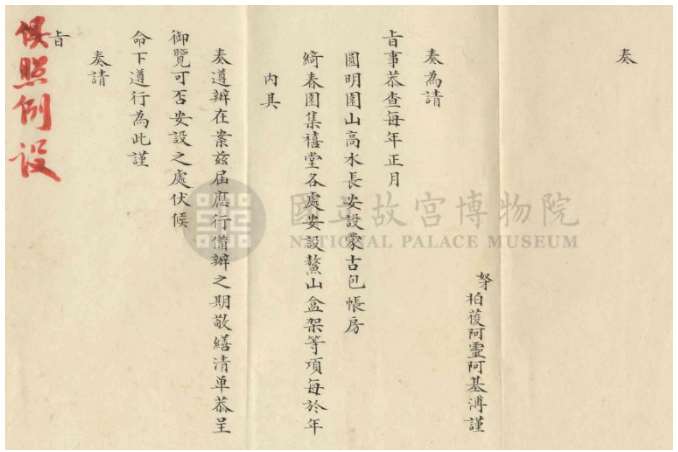 奏
奴才柏葰阿靈阿基溥謹
奏為請
旨事恭查每年正月
圓明園山高水長安設蒙古包帳房
綺春園集禧堂各處安設鰲山盒架等項每於年
內具
奏遵辦在案茲屆應行備辦之期敬繕清單恭呈
御覽可否安設之處伏候
命下遵行為此謹
奏請
旨
俱照例設
國立故宮博物院
NATIONAL PALACE MUSEUM